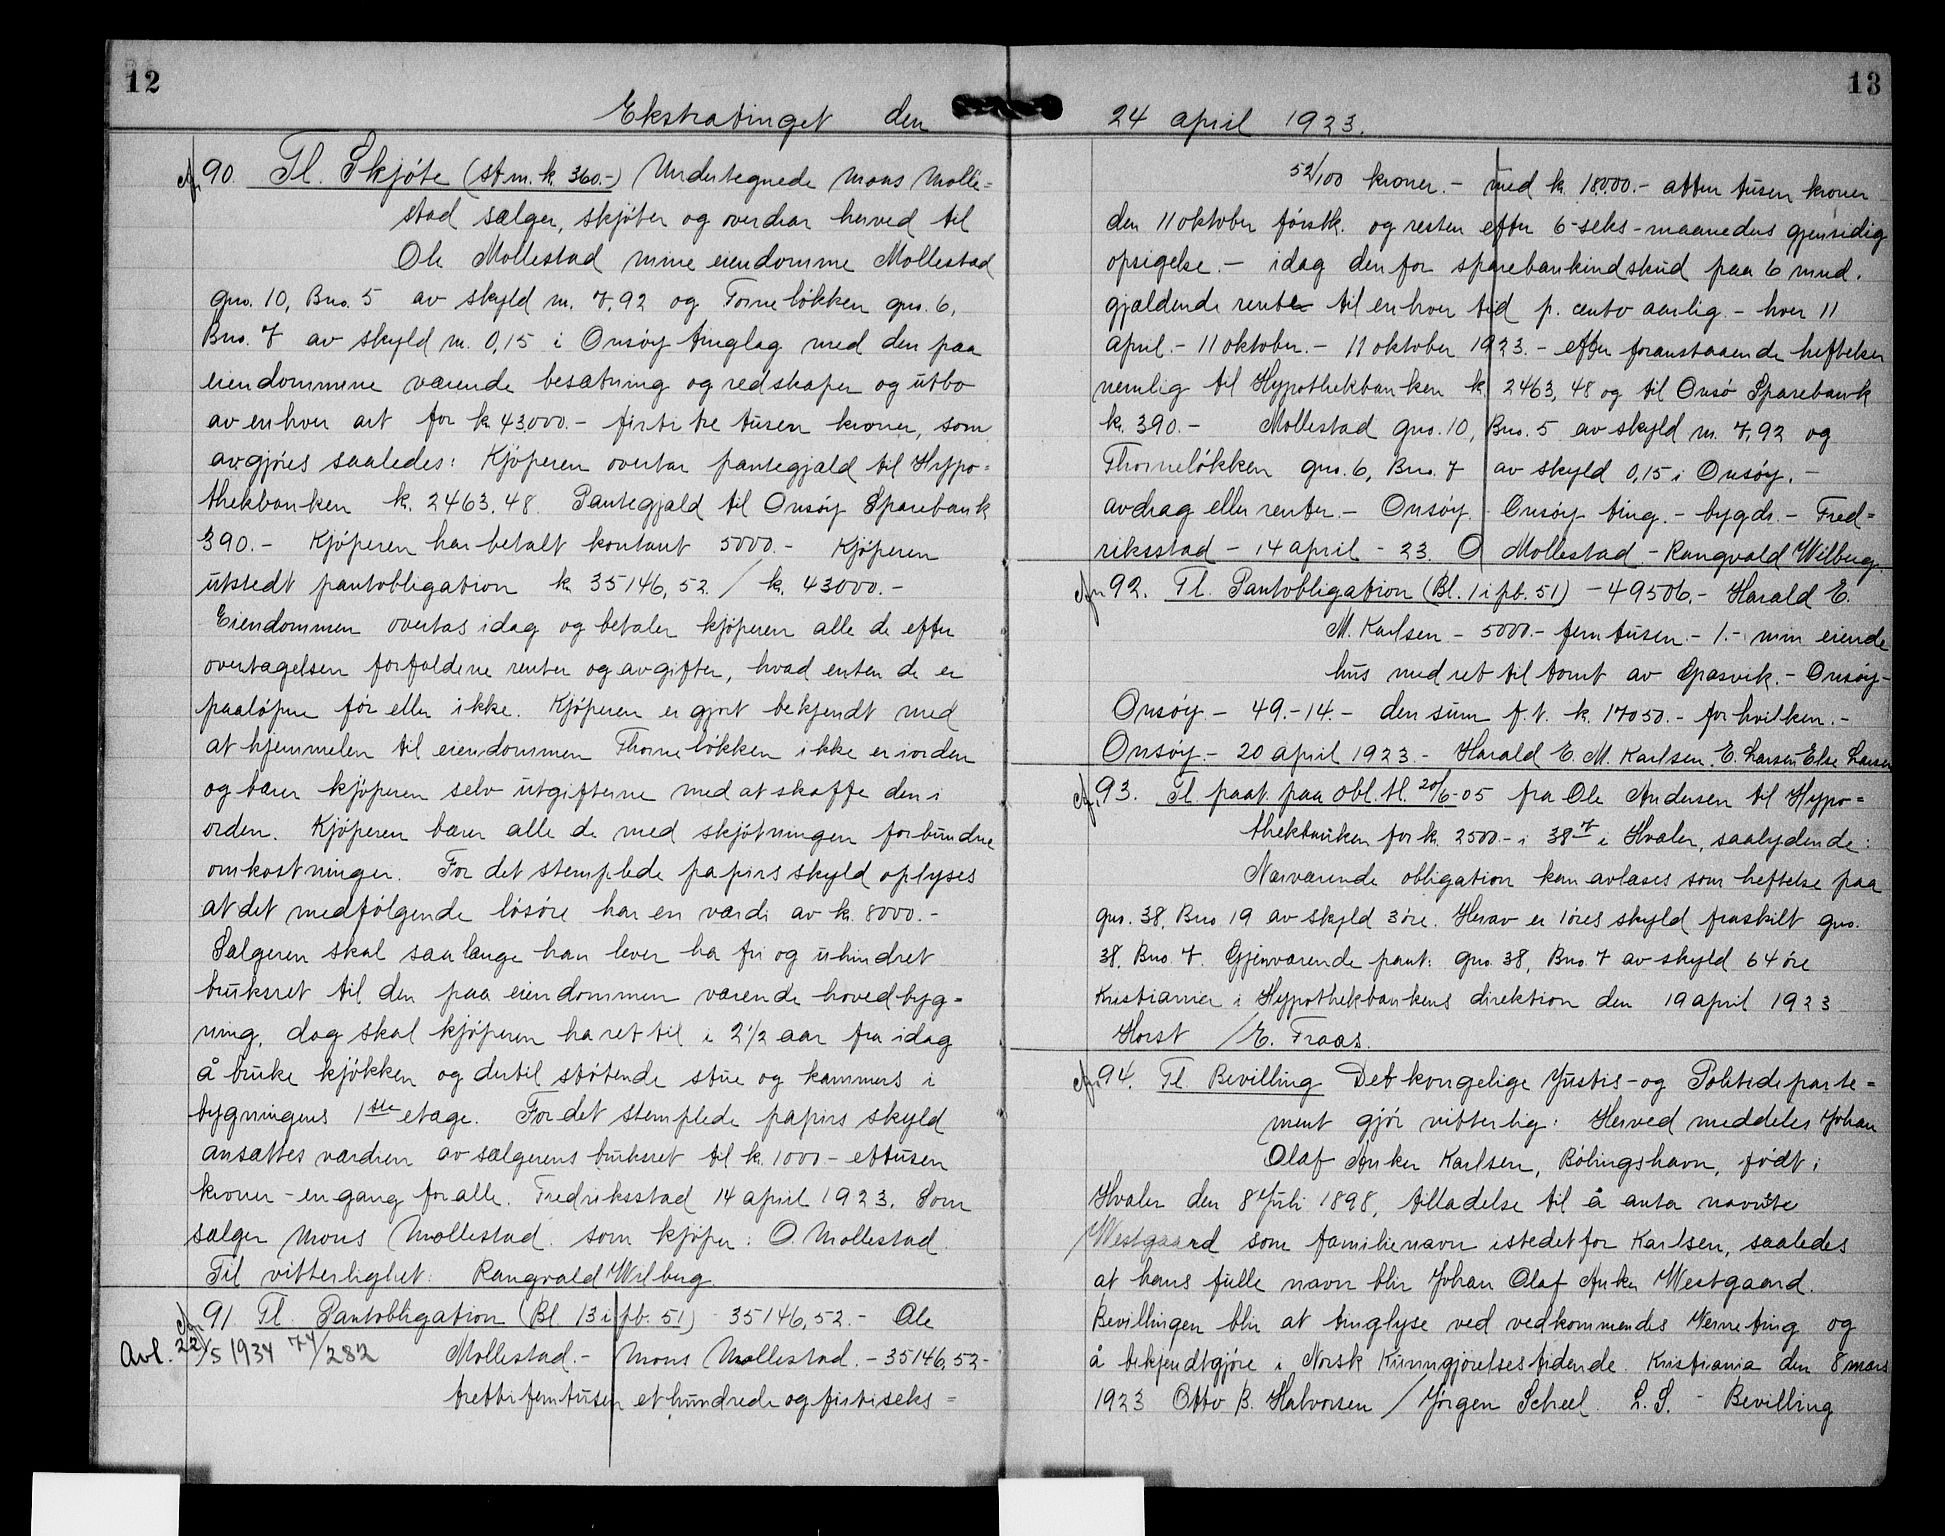 12
13
Ekstratinget den 24 april 1923.
90. Tl. Skjøte (st.m.k. 360.-) Undertegnede Mons Molle=
stad sælger, skjøter og overdrar herved til
Ole Mollestad mine eiendomme Mollestad
gno. 10, Bno. 5 av skyld m. 7,92 og Torneløkken gno. 6,
Bno. 7 av skyld m. 0,15 i Onsøy tinglag med den paa
eiendommene værende besætning og redskaper og utbo
av enhver art for k 43,000.- firti tre tusen kroner, som
avgjøres saaledes: Kjøperen overtar pantegjæld til Hypo=
thekbanken k. 2463.48. Pantegjæld til Onsøy Sparebank
390.- Kjøperen har betalt kontant 5000.- Kjøperen
utstedt pantobligation k. 35146,52. / k. 43000.-
Eiendommen overtas idag og betaler kjøperen alle de efter
overtagelsen forfaldene renter og avgifter, hvad enten de er
paaløpne før eller ikke. Kjøperen er gjort bekjendt med
at hjemmelen til eiendommen Thorneløkken ikke er iorden
og bærer kjøperen selv utgifterne med at skaffe den i
orden. Kjøperen bærer alle de med skjøtningen forbundne
omkostninger. For det stemplede papirs skyld oplyses
at det medfølgende løsøre har en værdi av kr. 8000.-
Sælgeren skal saalænge han lever ha fri og uhindret
bruksret til den paa eiendommen værende hovedbyg=
ning, dog skal kjøperen ha ret til i 2½ aar fra idag
å bruke kjøkken og dertil støtende stue og kammers i
bygningens 1ste etage. For det stemplede papirs skyld
ansættes værdien av sælgerens bruksret til k. 1000 - ettusen
kroner - en gang for alle. Fredriksstad 14 april 1923. Som
sælger Mons Mollestad. som kjøper: O. Mollestad.
Til vitterlighet: Rangvald Wilberg.
91 Tl. Pantobligation (Bl. 13 i pb. 51) - 35146,52.- Ole
Avl. 22/5 1934 74/282 Mollestad.- Mons Mollestad. - 35146,52-
trettifemtusen et hundrede og firtiseks =
52/100 kroner.- med k. 18000.- atten tusen kroner
den 11 oktober førstk. og resten efter 6-seks-maaneders gjensidig
opsigelse.- idag den for sparebankindskud paa 6 mnd.
gjældende rente til enhver tid p. cento aarlig.- hver 11
april.- 11 oktober.- 11 oktober 1923.- efter foranstaaende heftelser
nemlig til Hypothekbanken k. 2463,48 og til Onsø Sparebank
k. 390.- Mollestad gno. 10, Bno. 5 av skyld m. 7,92 og
Thorneløkken gno. 6, Bno. 7 av skyld 0,15 i Onsøy.-
avdrag eller renter.- Onsøy. - Onsøy ting.- bygds.- Fred=
riksstad - 14 april - 23. O Mollestad - Rangvald Wilberg.
92. Tl. Pantobligation (Bl. 1 i pb. 51) - 49506.- Harald E.
M. Karlsen - 5000.- femtusen.- 1.- min eiende
hus med ret til tomt av - Onsøy-
Onsøy.- 49.-14.- den sum f.t. k. 17050.- for hvilken.-
Onsøy.- 20 april 1923.- Harald E. M. Karlsen. E. Larsen Else Larsen
93. Tl paat. paa obl. tl. 20/6-05 fra Ole Andersen til Hypo=
thekbanken for k. 2500.- i 38 7 i Hvaler, saalydende:
Nærværende obligation kan avlæses som heftelse paa
gno. 38, Bno. 19 av skyld 3 øre. Herav er 1 øres skyld fraskilt gno.
38, Bno. 7. Gjenværende pant: gno. 38, Bno. 7 av skyld 64 øre
Kristiania i Hypothekbankens direktion den 19 april 1923
Horst / E. Fraas.
94. Tl. Bevilling Det kongelige Justis- og Politideparte=
ment gjør vitterlig: Herved meddeles Johan
Olaf Anker Karlsen, Bølingshavn, født i
Hvaler den 8 Juli 1898, tilladelse til å anta navnte
Westgaard som familienavn istedetfor Karlsen, saaledes
at hans fulle navn blir Johan Olaf Anker Westgaard.
Bevillingen blir at tinglyse ved vedkommendes Verneting og
å bekjendtgjøre i Norsk Kunngjørelsestidende. Kristiania den 8 mars
1923 Otto B. Halvorsen / Jørgen Scheel. L.S. - Bevilling